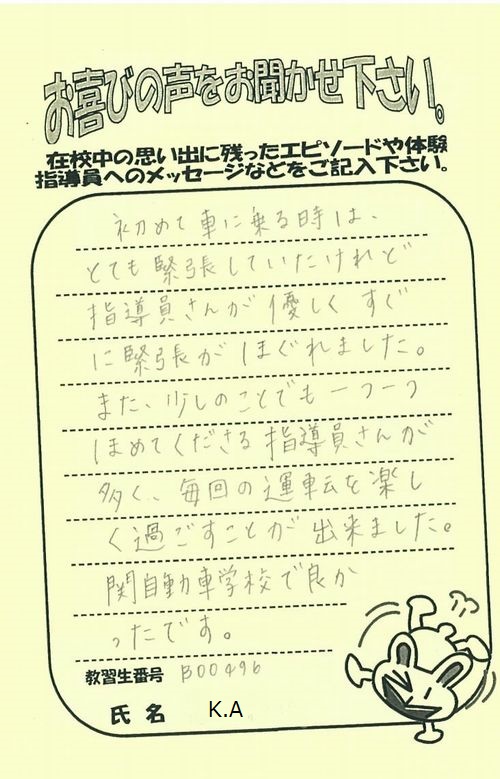 お喜びの声をお聞かせ下さい。
在校中の思い出に残ったエピソードや体験
指導員へのメッセージなどをご記入下さい。
初めて車に乗る時は、
とても緊張していたけれど
指導員さんが優しくすぐ
に緊張がほぐれました。
また、少しのことでも一つ一つ
ほめてくださる指導員さんが
多く、毎回の運転を楽し
く過ごすことが出来ました。
関自動車学校で良か
ったです。
教習生番号 B00496
氏名 K.A